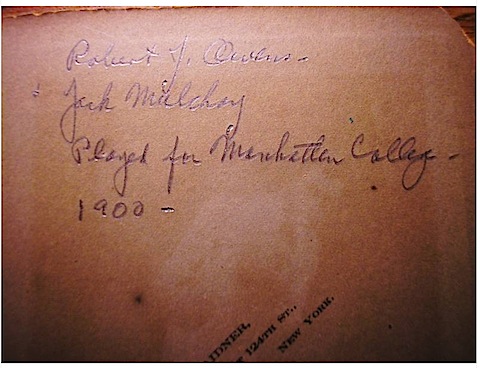 Robert J. Owens -
& Jack Mulchay
Played for Manhattan College -
1900 -
IDNER,
124TH ST.,
NEW YORK.